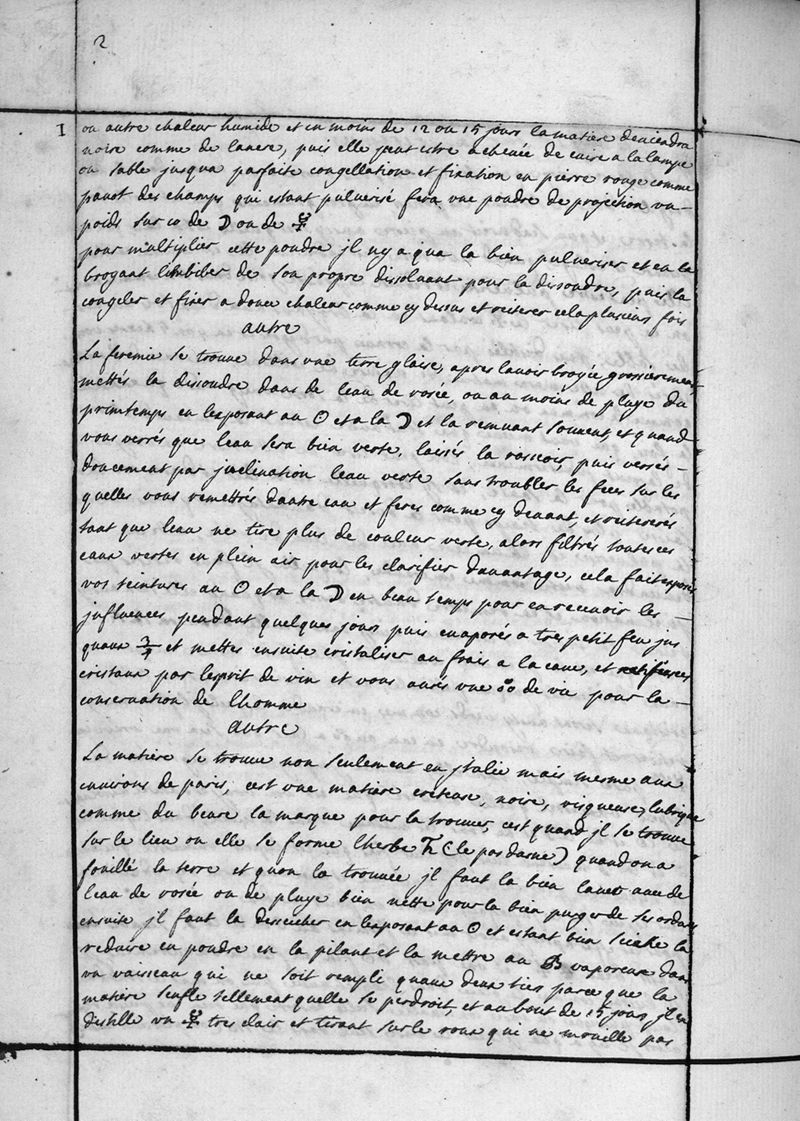 2
1 ou autre chaleur humide et en moins de 12 ou 15 jours la matiere deviendra
noire comme de lancre, puis elle peut estre achevée de cuire a la lampe
ou sable jusqua parfaite congellation et fixation en pierre rouge comme
pavot des champs qui estant pulverisé fera une poudre de projection un
poids sur 10 de ☽ ou de ☿
pour multiplier cette poudre jl ny a qua la bien pulveriser et en la
broyant limbiber de son propre dissoluant pour la dissoudre, puis la
congeler et fixer a douce chaleur comme cy dessus et reiterer cela plusieurs fois
autre
La feremie se trouve dans une terre glaise, apres lavoir broyée grossierement
mettés la dissoudre dans de leau de rosée, ou au moins de pluye du
printemps en lexposant au ☉ et a la ☽ et la remuant souvent, et quand
vous verrés que leau sera bien verte, laissés la rassoir, puis versés
doucement par jnclination leau verte sans troubler les feces sur les
quelles vous remettrés dautre eau et feres comme cy devant, et reitererés
tant que leau ne tire plus de couleur verte, alors filtrés toutes ces
eaux vertes en plein air pour les clarifier davantage, cela fait exposés
vos teintures au ☉ et a la ☽ en beau temps pour en recevoir les
jnfluences pendant quelques jours puis evaporés a tres petit feu jus
quaux 3/4 et mettes ensuite cristaliser au frais a la cave, et
cristaux par lesprit de vin et vous aurés une de vie pour la
conservation de lhomme
autre
La matiere se trouve non seulement en jtalie mais mesme aux
environs de paris, cest une matiere creteuse, noire, visqueuse, lubrique
comme du beure la marque pour la trouver, cest quand jl se trouve
sur le lieu ou elle se forme lherbe (le pas dasne) quand on a
fouillé la terre et quon la trouvée jl faut la bien laver avec de
leau de rosée ou de pluye bien nette pour la bien purger de ses ordures
ensuite jl faut la dessecher en lexposant au ☉ et estant bien seiche la
reduire en poudre en la pilant et la mettre au vaporeux dans
un vaisseau qui ne soit rempli quaux deux tiers parce que la
matiere senfle tellement quelle se perdroit, et au bout de 15 jours jl en
distille un ☿ tres clair et tirant sur le roux qui ne mouille pas